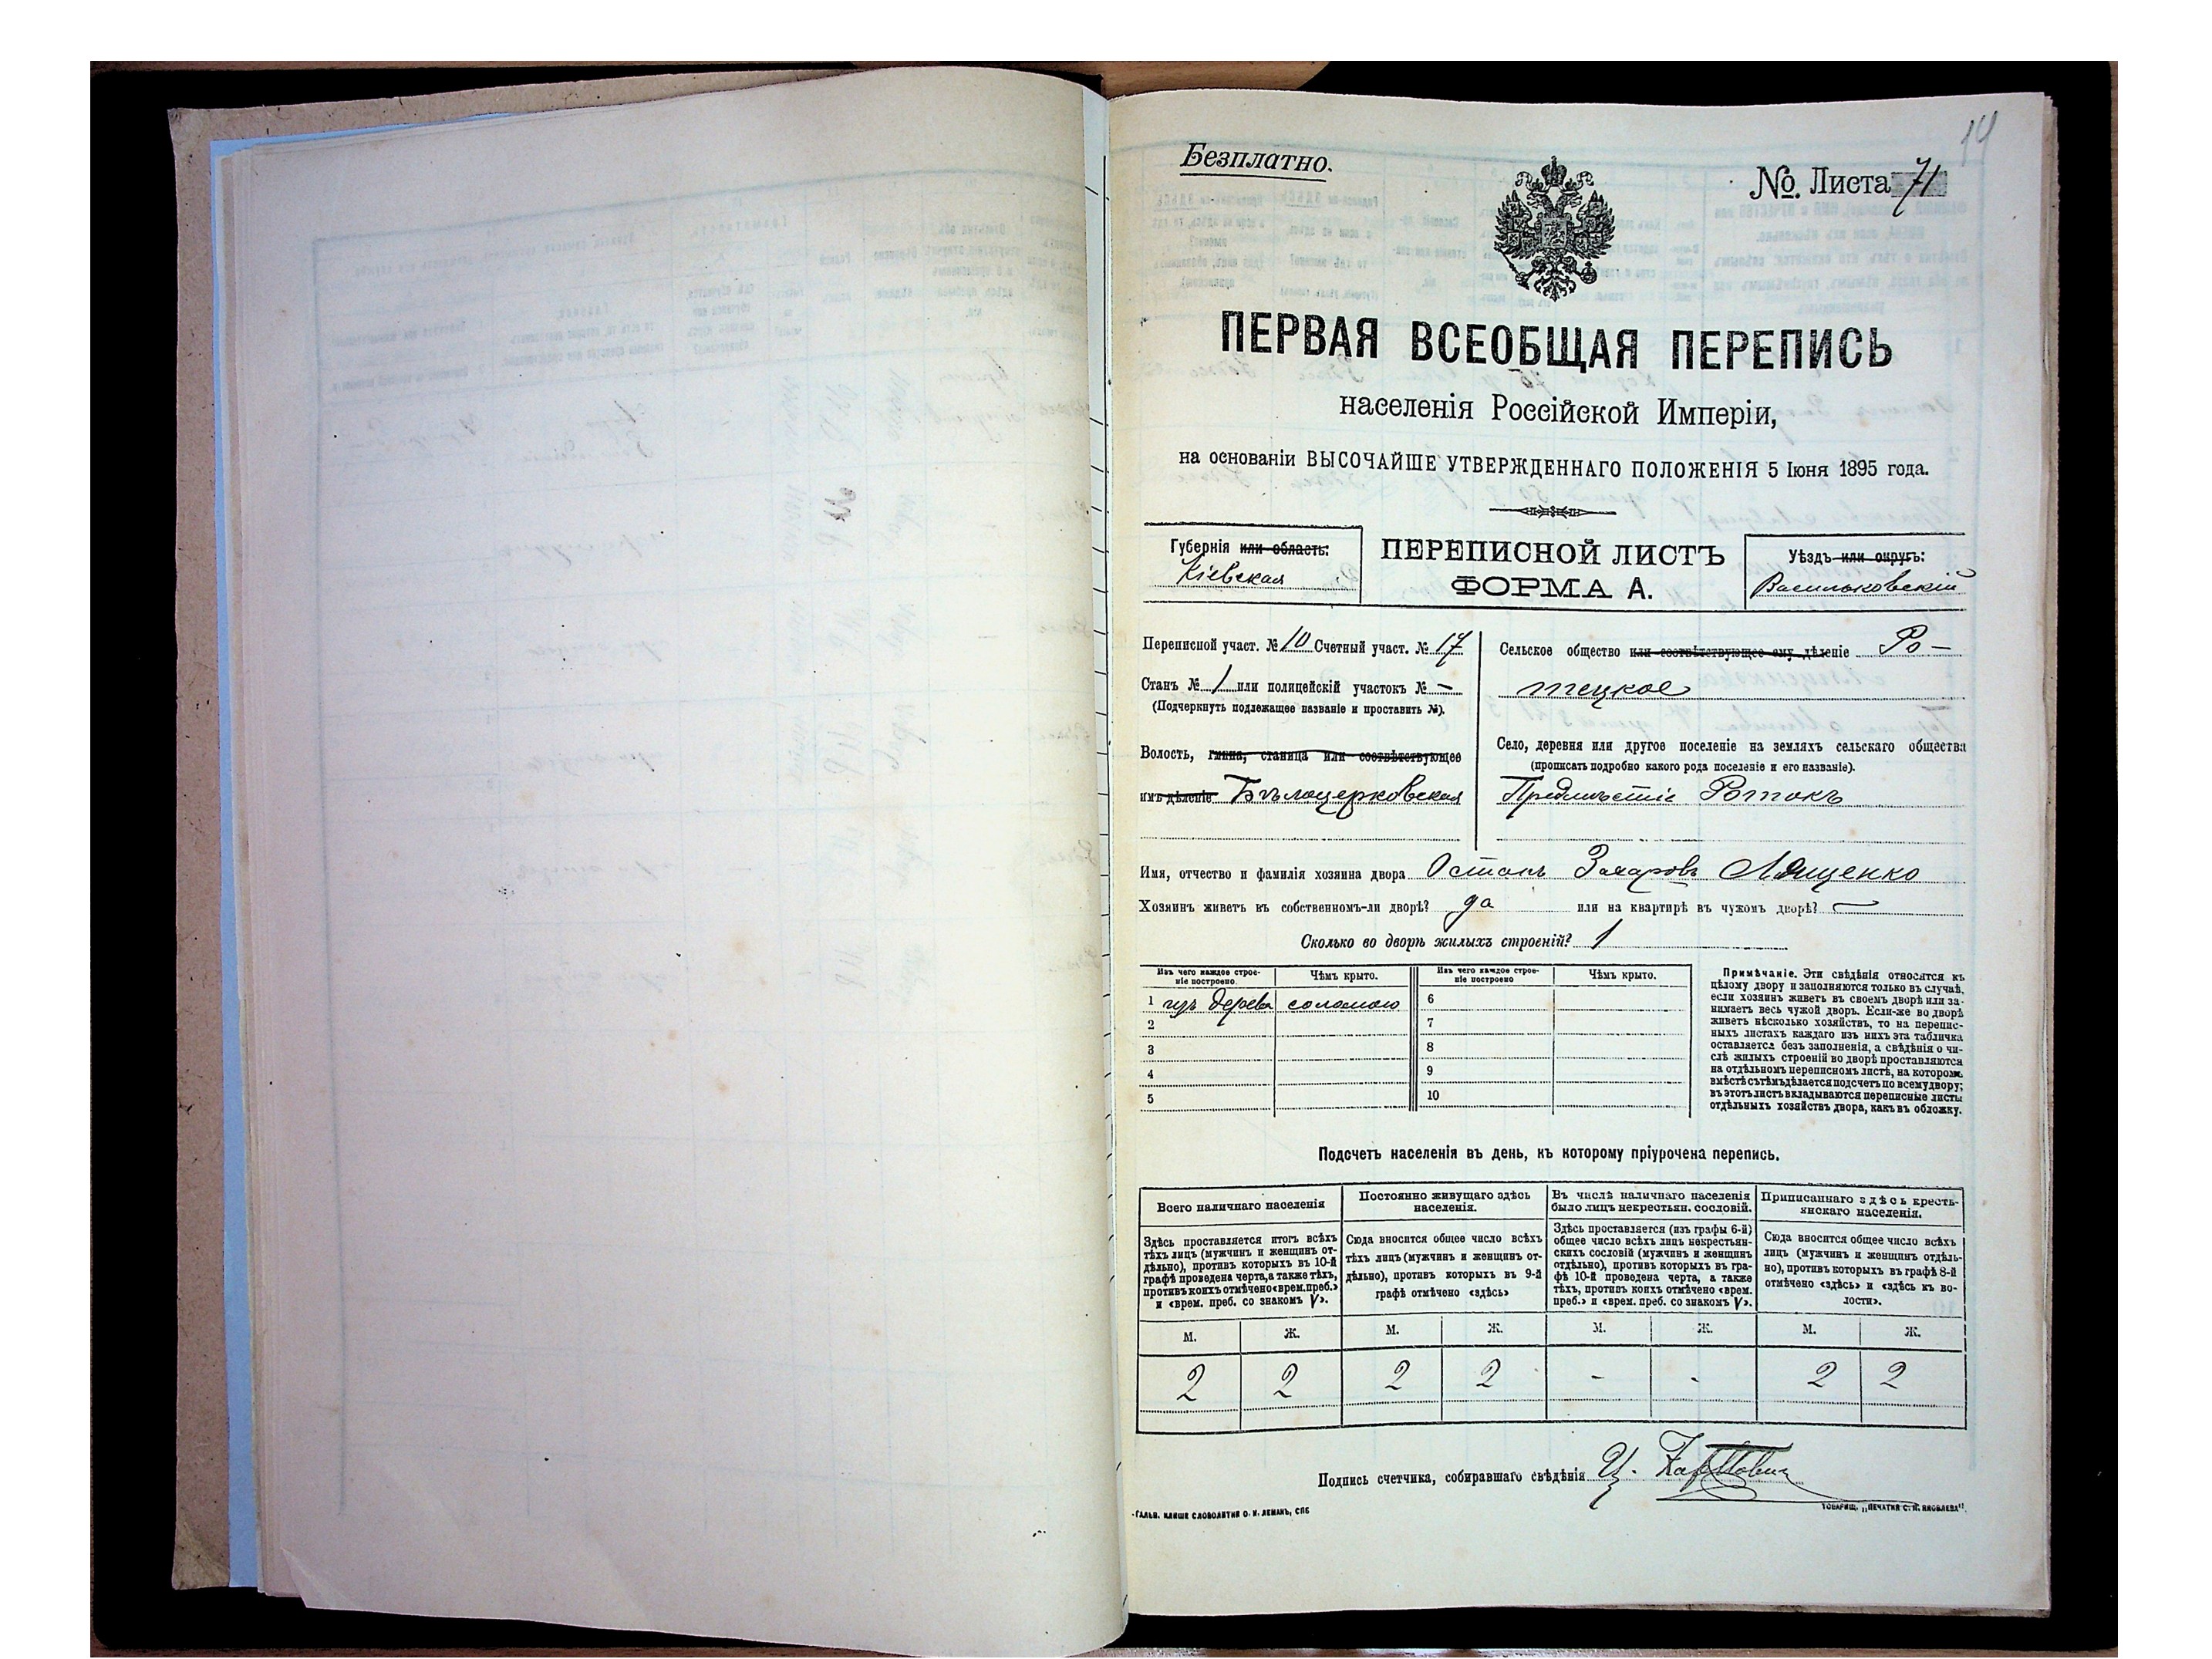 14
Безплатно.
№ Листа 71
ПЕРВАЯ ВСЕОБЩАЯ ПЕРЕПИСЬ
населенія Россійской Имперіи,
на основаніи ВЫСОЧАЙШЕ УТВЕРЖДЕННАГО ПОЛОЖЕНІЯ 5 Іюня 1895 года.
Губернія или область:
Кіевская
ПЕРЕПИСНОЙ ЛИСТЪ
ФОРМА А.
Уѣздъ или округъ:
Васильковскій
Переписной участ. № 10 Счетный участ. № 17
Станъ № 1 или полицейскій участокъ № —
(Подчеркнуть подлежащее названіе и проставить №).
Волость, гмина, станица или соотвѣтствующее
имъ дѣленіе Бѣлоцерковская
Сельское общество или соотвѣтствующее ему дѣленіе Ро-
тецкое
Село, деревня или другое поселеніе на земляхъ сельскаго общества
(прописать подробно какого рода поселеніе и его названіе).
Предмѣстіе Ротокъ
Имя, отчество и фамилія хозяина двора Остапъ Захаровъ Ляшенко
Хозяинъ живетъ въ собственномъ-ли дворѣ? да или на квартирѣ въ чужомъ дворѣ? —
Сколько во дворѣ жилыхъ строеній? 1
Изъ чего каждое строе-
ніе построено.
Чѣмъ крыто.
Изъ чего каждое строе-
ніе построено
Чѣмъ крыто.
1 изъ дерева соломою 6
2 7
3 8
4 9
5 10
Примѣчаніе. Эти свѣдѣнія относятся къ
цѣлому двору и заполняются только въ случаѣ,
если хозяинъ живетъ въ своемъ дворѣ или за-
нимаетъ весь чужой дворъ. Если-же во дворѣ
живетъ нѣсколько хозяйствъ, то на перепис-
ныхъ листахъ каждаго изъ нихъ эта табличка
оставляется безъ заполненія, а свѣдѣнія о чи-
слѣ жилыхъ строеній во дворѣ проставляются
на отдѣльномъ переписномъ листѣ, на которомъ
вмѣстѣ съ тѣмъ дѣлается подсчетъ по всему двору;
въ этотъ листъ вкладываются переписные листы
отдѣльныхъ хозяйствъ двора, какъ въ обложку.
Подсчетъ населенія въ день, къ которому пріурочена перепись.
Всего наличнаго населенія
Здѣсь проставляется итогъ всѣхъ
тѣхъ лицъ (мужчинъ и женщинъ от-
дѣльно), противъ которыхъ въ 10-й
графѣ проведена черта, а также тѣхъ,
противъ коихъ отмѣчено «врем. преб.»
и «врем. преб. со знакомъ V».
Постоянно живущаго здѣсь
населенія.
Сюда вносится общее число всѣхъ
тѣхъ лицъ (мужчинъ и женщинъ от-
дѣльно), противъ которыхъ въ 9-й
графѣ отмѣчено «здѣсь»
Въ числѣ наличнаго населенія
было лицъ некрестьян. сословій.
Здѣсь проставляется (изъ графы 6-й)
общее число всѣхъ лицъ некрестьян-
скихъ сословій (мужчинъ и женщинъ
отдѣльно), противъ которыхъ въ гра-
фѣ 10-й проведена черта, а также
тѣхъ, противъ коихъ отмѣчено «врем.
преб.» и «врем. преб. со знакомъ V».
Приписаннаго здѣсь кресть-
янскаго населенія.
Сюда вносится общее число всѣхъ
лицъ (мужчинъ и женщинъ отдѣль-
но), противъ которыхъ въ графѣ 8-й
отмѣчено «здѣсь» и «здѣсь къ во-
лости».
М. Ж. М. Ж. М. Ж. М. Ж.
2 2 2 2 - - 2 2
Подпись счетчика, собиравшаго свѣдѣнія
ГАЛЬВ. КЛИШЕ СЛОВОЛИТНИ О. И. ЛЕМАНЪ, СПБ
ТОВАРИЩ. „ПЕЧАТНЯ С. П. ЯКОВЛЕВА"